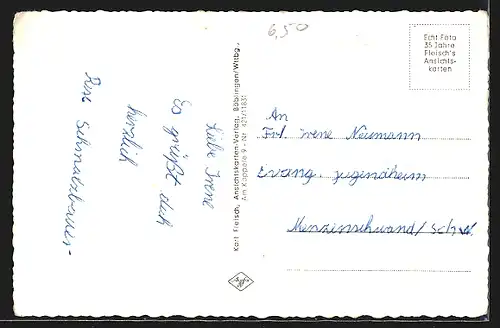 6,50
Echt Foto
35 Jahre
Fleisch's
Ansichts-
karten
Liebe Irene
Es grüßt dich
herzlich
Rose Schmalzbauer-
Karl Fleisch, Ansichtskarten-Verlag, Böblingen/Wttbg.,
Am Käppele 9 - Nr. 421/11831
An
Frl. Irene Neumann
Evang. Jugendheim
Menzenschwand/Schw.
Agfa